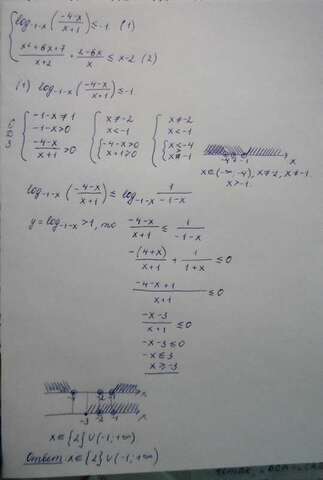 { log₋₁₋ₓ((-4-x)/(x+1)) ≤ -1 (1)
(x²+6x+7)/(x+2) + (2-6x)/x ≤ x-2 (2)
(1) log₋₁₋ₓ((-4-x)/(x+1)) ≤ -1
{ -1-x≠1 { x≠-2 { x≠-2
-1-x>0 x<-1 x<-1
(-4-x)/(x+1) >0 { -4-x>0 { x<-4
x+1≠0 x≠-1
x∈(-∞;-4), x≠-2, x≠-1.
x>-1.
log₋₁₋ₓ((-4-x)/(x+1)) ≤ log₋₁₋ₓ 1/(-1-x)
y=log₋₁₋ₓ>1, то (-4-x)/(x+1) ≤ 1/(-1-x)
-(4+x)/(x+1) + 1/(1+x) ≤0
(-4-x+1)/(x+1) ≤0
(-x-3)/(x+1) ≤0
-x-3≤0
-x≤3
x≥-3
-3 x
x∈{2}∪(-1;+∞)
Ответ: x∈{2}∪(-1;+∞)